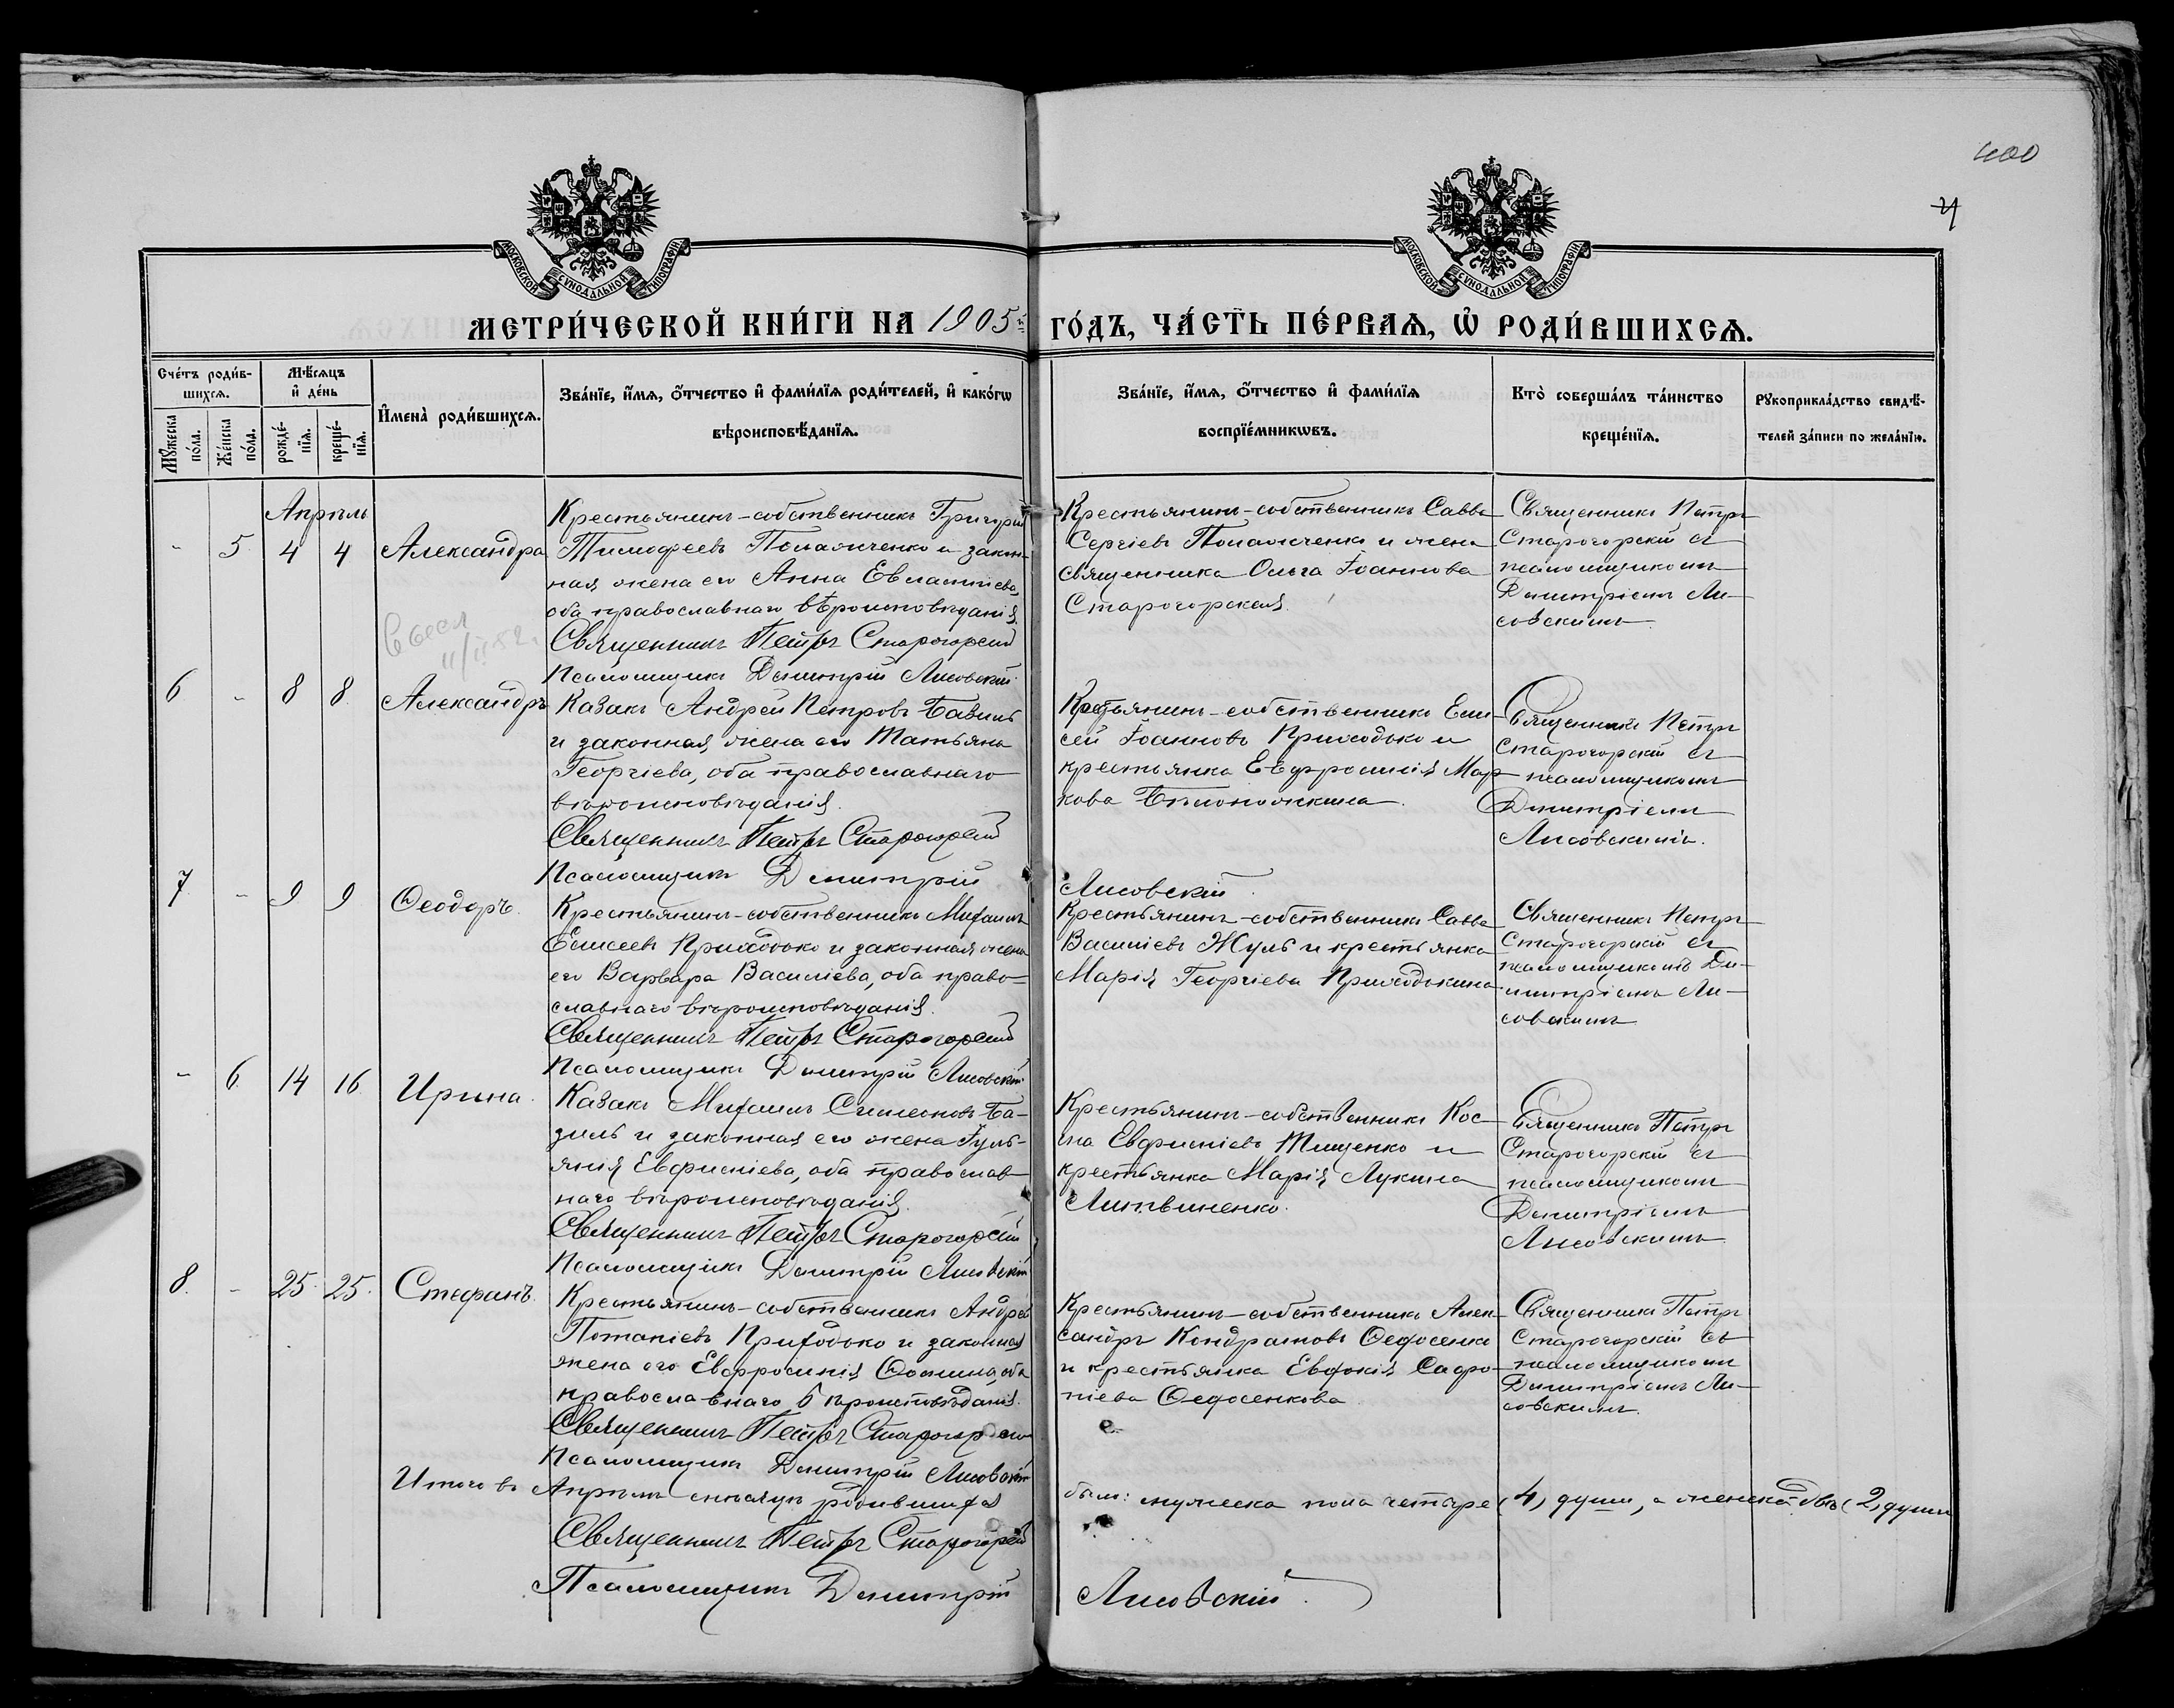 400
4
МОСКОВСКОЙ СѴНОДАЛЬНОЙ ТИПОГРАФІИ
МОСКОВСКОЙ СѴНОДАЛЬНОЙ ТИПОГРАФІИ
МЕТРИ́ЧЕСКОЙ КНИ́ГИ НА 1905й ГО́ДЪ, ЧА́СТЬ ПЕ́РВАѦ, Ѡ҆ РОДИ́ВШИХСѦ.
Сче́тъ роди́в-
шихсѧ.
Мꙋ́жеска по́ла.
Же́нска по́ла.
Мѣ́сѧцъ
и҆ де́нь
рожде́-
нїѧ.
креще́-
нїѧ.
И҆мена̀ роди́вшихсѧ.
Зва́нїе, и҆́мѧ, ѻ҆́тчество и҆ фами́лїѧ роди́телей, и҆ како́гѡ
вѣроисповѣ́данїѧ.
Зва́нїе, и҆́мѧ, ѻ҆́тчество и҆ фами́лїѧ
воспрїе́мникѡвъ.
Кто̀ соверша́лъ та́инство
креще́нїѧ.
Рꙋкоприкла́дство свидѣ́-
телей за́писи по жела́нїю.
Апрѣль
- 5 4 4 Александра
Крестьянинъ-собственникъ Григорій
Тимоѳеевъ и закон-
ная жена его Анна Евлампіева,
оба православнаго вѣроисповѣданія.
Священникъ Петръ Старогорскій
Псаломщикъ Димитрій Лисовскій
Крестьянинъ-собственникъ Савва
Сергіевъ и жена
священника Ольга Іоаннова
Старогорская.
Священникъ Петръ
Старогорскій съ
псаломщикомъ
Димитріемъ Ли-
совскимъ
6 - 8 8 Александръ
Казакъ Андрей Петровъ Базиль
и законная жена его Татьяна
Георгіева, оба православнаго
вѣроисповѣданія.
Священникъ Петръ Старогорскій
Псаломщикъ Димитрій
Лисовскій.
Крестьянинъ-собственникъ Ели-
сей Іоанновъ Приходько и
крестьянка Евфросинія Мар-
кова
Священникъ Петръ
Старогорскій съ
псаломщикомъ
Димитріемъ
Лисовскимъ.
7 - 9 9 Ѳеодоръ.
Крестьянинъ-собственникъ Михаилъ
Елисеевъ Приходько и законная жена
его Варвара Василіева, оба право-
славнаго вѣроисповѣданія.
Священникъ Петръ Старогорскій
Псаломщикъ Димитрій Лисовскій
Крестьянинъ-собственникъ Савва
Василіевъ Жуль и крестьянка
Марія Георгіева Приходькина
Священникъ Петръ
Старогорскій съ
псаломщикомъ Ди-
митріемъ Ли-
совскимъ
- 6 14 16 Ирина.
Казакъ Михаилъ Симеоновъ Ба-
зиль и законная его жена Іуль-
янія Евфиміева, оба православ-
наго вѣроисповѣданія.
Священникъ Петръ Старогорскій
Псаломщикъ Димитрій Лисовскій
Крестьянинъ-собственникъ Кос-
ма Евфиміевъ Тищенко и
крестьянка Марія Лукина
Литвиненко.
Священникъ Петръ
Старогорскій съ
псаломщикомъ
Димитріемъ
Лисовскимъ
8. - 25 25. Стефанъ.
Крестьянинъ-собственникъ Андрей
Потапіевъ Приходько и законная
жена его Евфросинія Ѳомина, оба
православнаго вѣроисповѣданія.
Священникъ Петръ Старогорскій
Псаломщикъ Димитрій Лисовскій
Крестьянинъ-собственникъ Алек-
сандръ Кондратовъ Ѳедосенко
и крестьянка Евдокія Сафро-
ніева Ѳедосенкова
Священникъ Петръ
Старогорскій съ
псаломщикомъ
Димитріемъ Ли-
совскимъ.
Итого въ Апрѣлѣ мѣсяцѣ родившихся было: мужеска пола четыре (4) души, а женска двѣ (2) души
Священникъ Петръ Старогорскій
Псаломщикъ Димитрій Лисовскій.